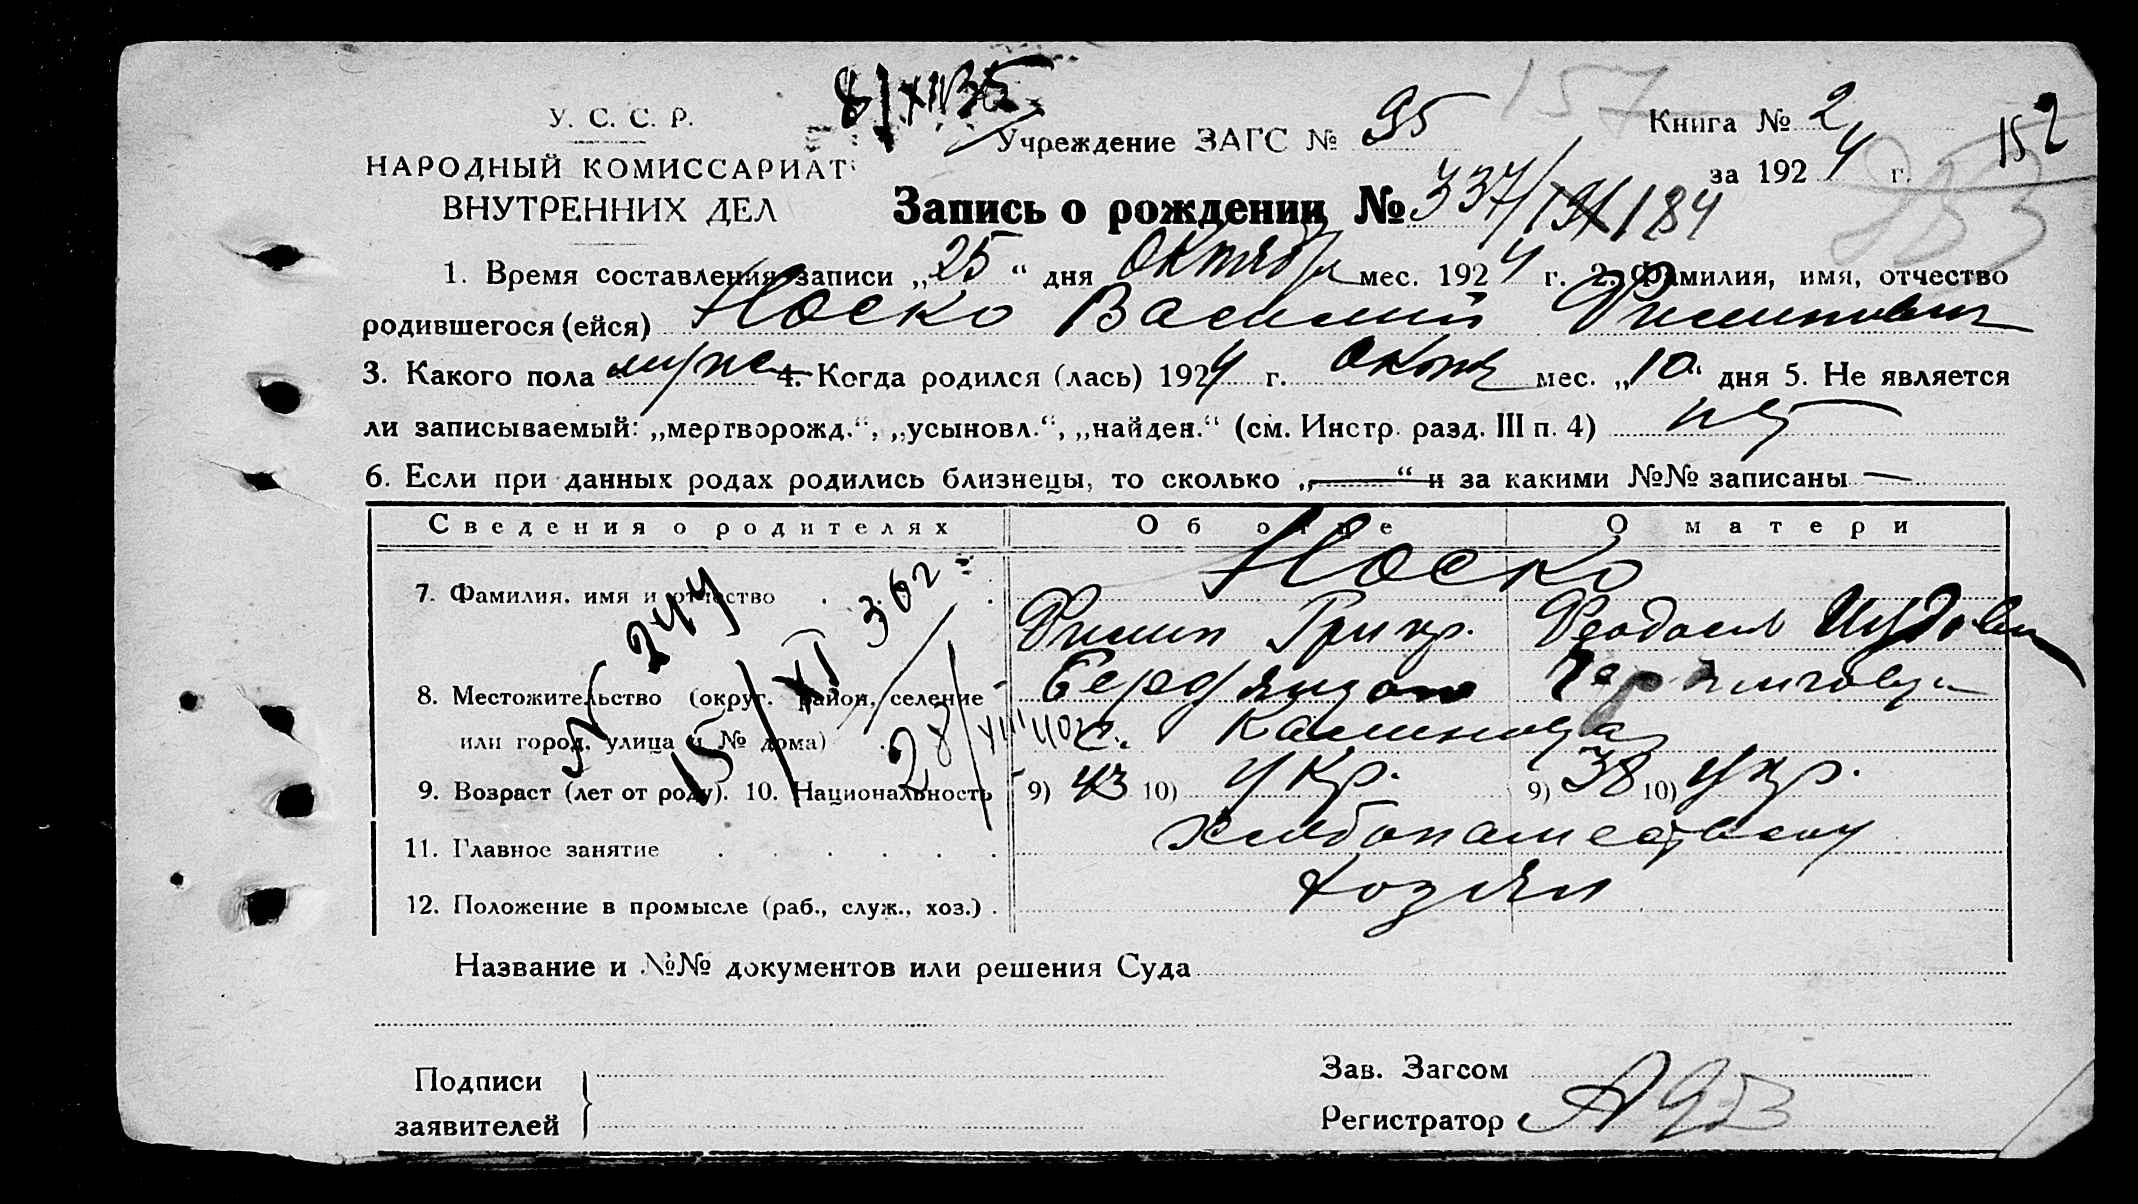 8/XII 35
157
У. С. С. Р.
Учреждение ЗАГС № 95
Книга № 2
152
НАРОДНЫЙ КОМИССАРИАТ
ВНУТРЕННИХ ДЕЛ
за 1924 г.
153
Запись о рождении № 337/184
1. Время составления записи „25“ дня Октября мес. 1924 г. 2. Фамилия, имя, отчество
родившегося (ейся) Носко Василий Филипович
3. Какого пола муже 4. Когда родился (лась) 1924 г. Октяб мес. „10“ дня 5. Не является
ли записываемый: „мертворожд.“, „усыновл.“, „найден.“ (см. Инстр. разд. III п. 4) нет
6. Если при данных родах родились близнецы, то сколько „—“ и за какими №№ записаны —
Сведения о родителях Об отце О матери
Носко
7. Фамилия, имя и отчество
Филип Григор. Феодосия
8. Местожительство (округ, район, селение
или город, улица и № дома)
с. Калиновка
N 244
15/XI 362
28/VIII 40
9. Возраст (лет от роду). 10. Национальность 9) 43 10) укр. 9) 38 10) укр.
11. Главное занятие хлебопашество
12. Положение в промысле (раб., служ., хоз.) хозяин
Название и №№ документов или решения Суда
Подписи
заявителей
Зав. Загсом
Регистратор